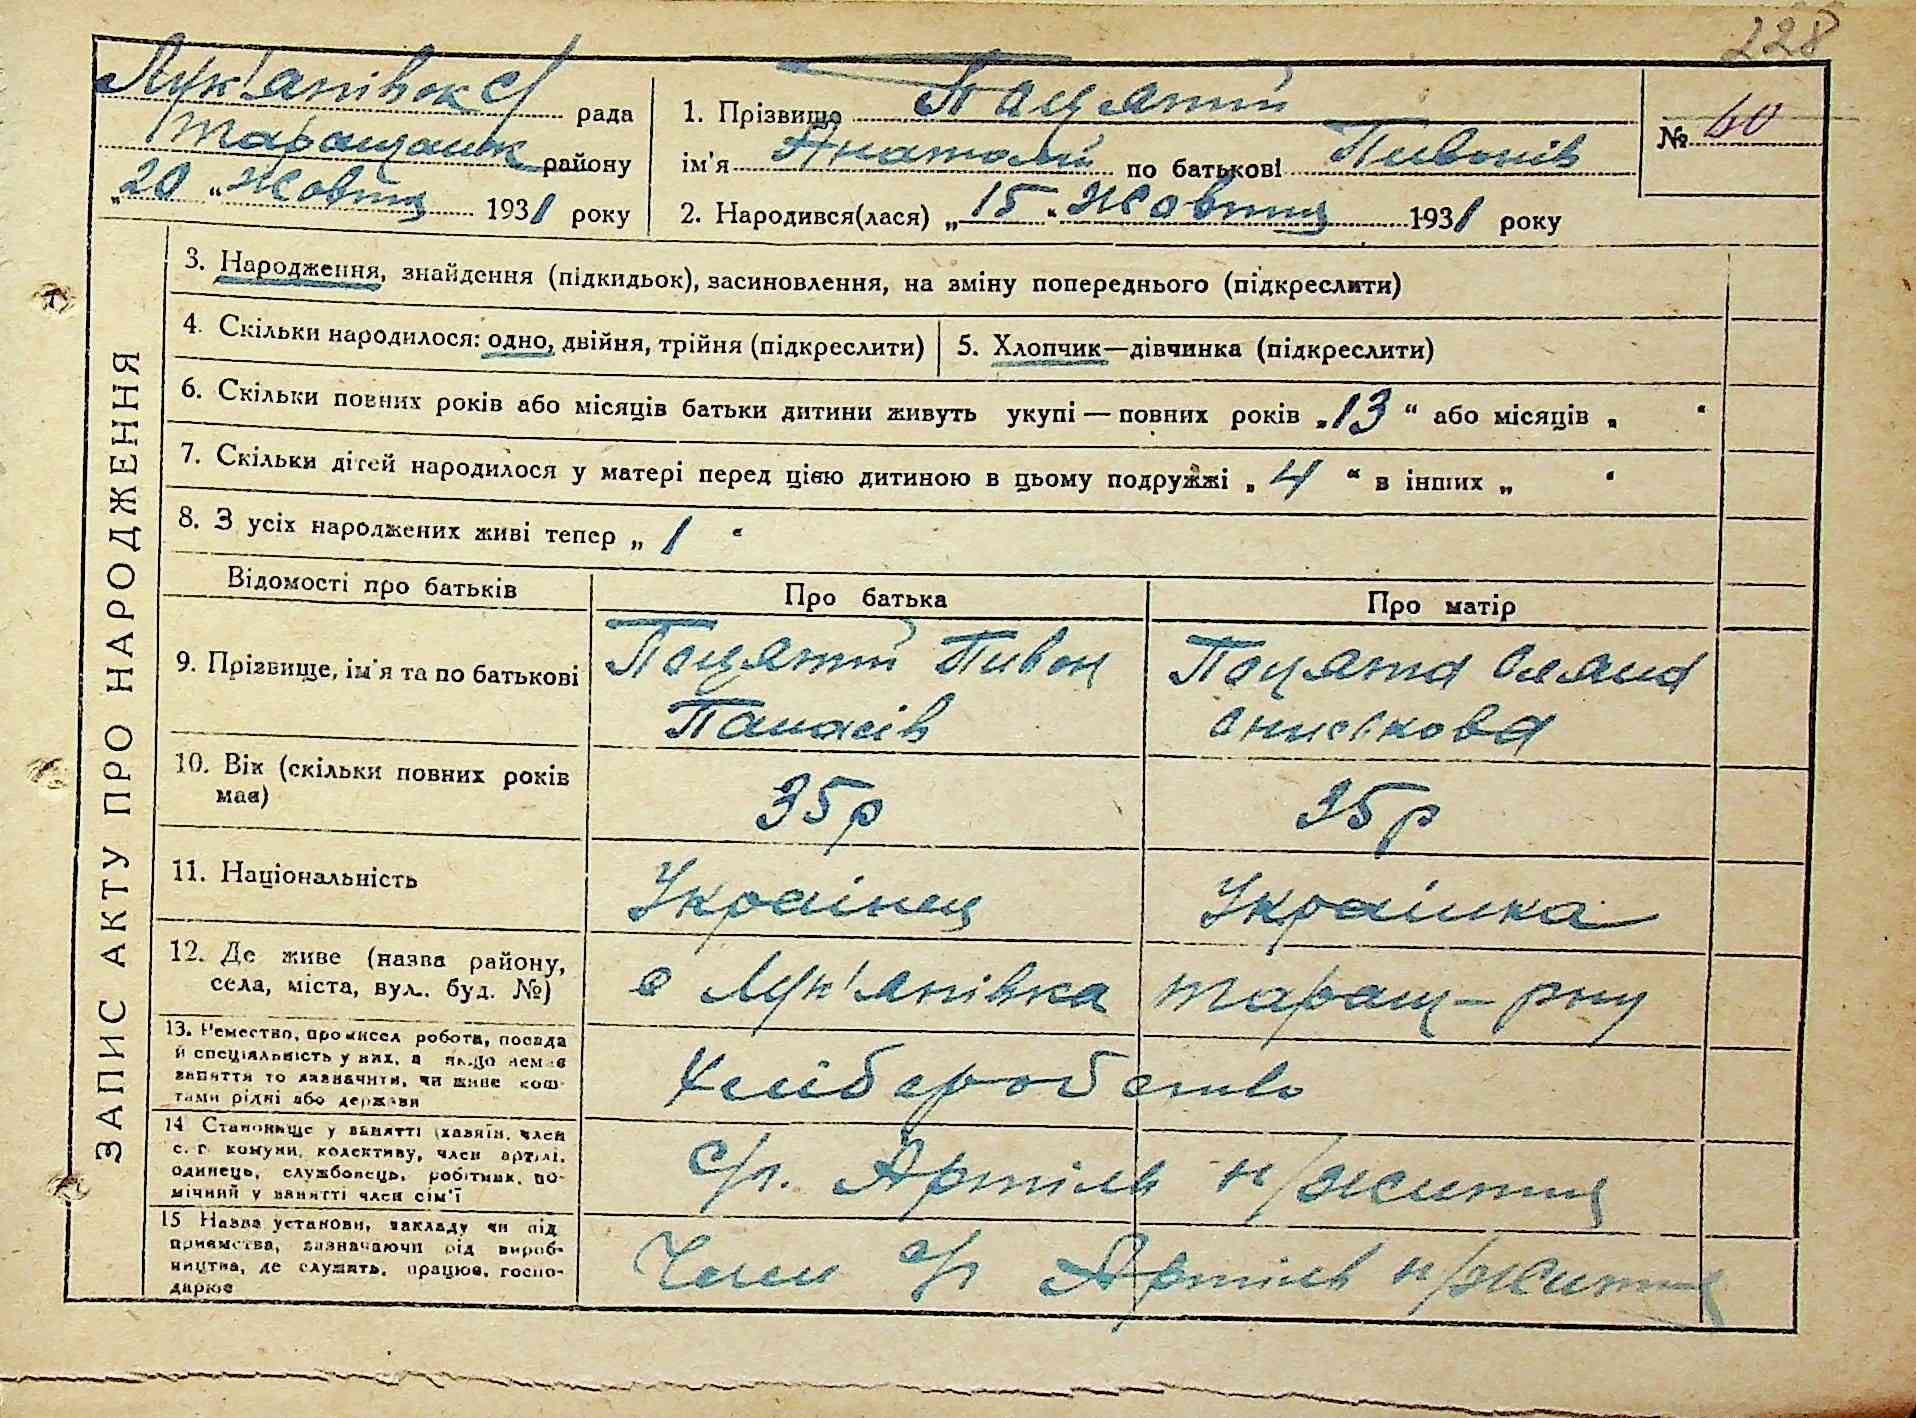 228
Лук'янівск с/ рада
Таращанск району
„20“ Жовтня 1931 року
1. Прізвище Пацятий
ім'я Анатолій по батькові Пивонів
2. Народився(лася) „15“ Жовтня 1931 року
№ 60
ЗАПИС АКТУ ПРО НАРОДЖЕННЯ
3. Народження, знайдення (підкидьок), засиновлення, на зміну попереднього (підкреслити)
4. Скільки народилося: одно, двійня, трійня (підкреслити)
5. Хлопчик—дівчинка (підкреслити)
6. Скільки повних років або місяців батьки дитини живуть укупі — повних років „13“ або місяців „ “
7. Скільки дітей народилося у матері перед цією дитиною в цьому подружжі „4“ в інших „ “
8. З усіх народжених живі тепер „1“
Відомості про батьків
Про батька
Про матір
9. Прізвище, ім'я та по батькові
Пацятий Пивон
Панасів
Пацята Оляна
Описькова
10. Вік (скільки повних років
має)
35р
35р
11. Національність
Українец
Українка
12. Де живе (назва району,
села, міста, вул. буд. №)
с Лук'янівка Таращ– рну
13. Ремество, промисел робота, посада
й спеціяльність у них, а якщо немає
заняття то зазначити, чи живе кош-
тами рідні або держави
Хліборобство
14 Становище у занятті (хазяїн, член
с. г. комуни, колективу, член артілі,
одинець, службовець, робітник, по-
мічний у занятті член сім'ї
с/г. Артіль н/життя
15 Назва установи, закладу чи під
приємства, зазначаючи рід вироб-
ництва, де служить, працює, госпо-
дарює
Член с/г Артіль н/життя